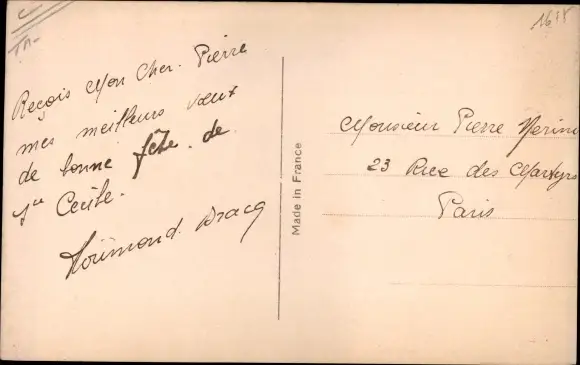 Reçois Mon Cher Pierre
mes meilleurs vœux
de bonne fête de
Ste Cécile.
Made in France
Monsieur Pierre
23 Rue des Martyrs
Paris